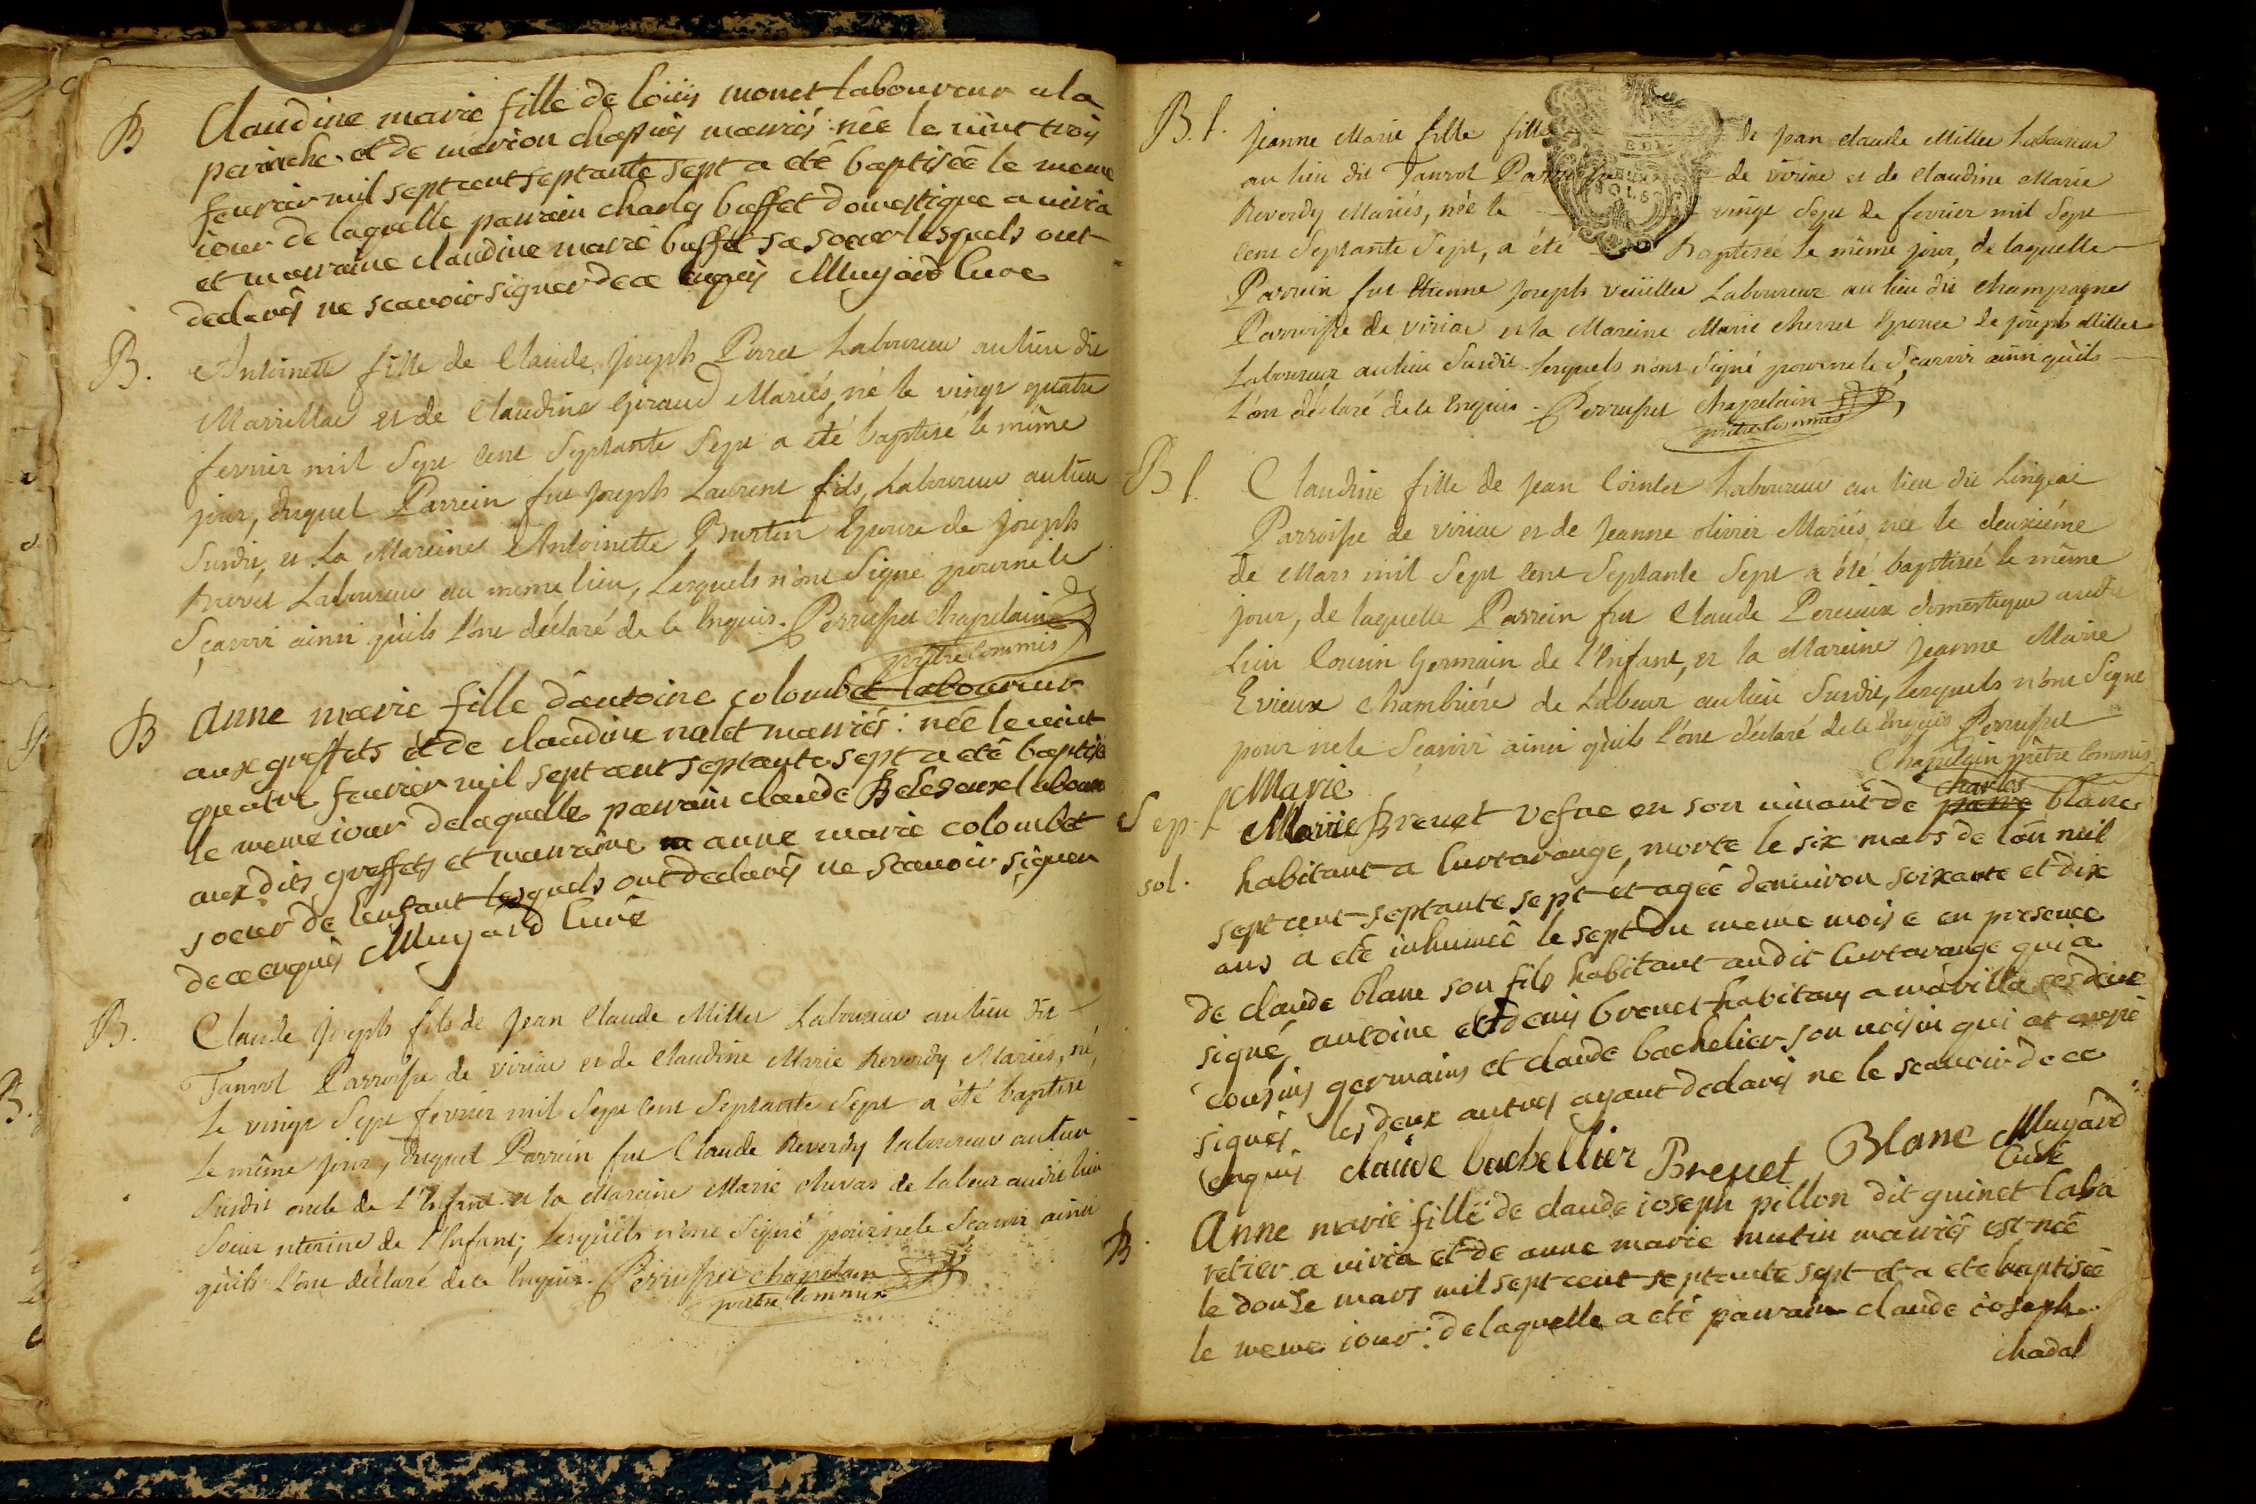 B Claudine marie fille de loüis monet laboureur a la
peirache et de marion chapuis mariés née le vint trois
feuvrier mil sept cent septante sept a eté baptisée le meme
iour de laquelle parrain charles buffet domestique a viria
et marraine claudine marie buffet sa soeur lesquels ont
declarés ne scavoir signer de ce enquis Mugard Curé
B. Antoinette fille de Claude Joseph Perret Laboureur au lieu dit
Marillac et de Claudine Giraud Mariés, né le vingt quatre
fevrier mil Sept Cent Septante Sept a été baptisé le même
jour, duquel Parrein fut Joseph Laurent fils, Laboureur au lieu
Susdit, et La Mareine Antoinette Burtin Epouse de Joseph
Brevet Laboureur au même lieu, Lesquels n'ont Signé pour ne le
Sçavoir ainsi qu'ils l'ont déclaré de ce Enquis. Perruquet Chapelain
prêtre Commis
B Anne marie fille d'antoine colombet laboureur
aux greffets et de claudine nalet mariés: née le vint
quatre feuvrier mil sept cent septante sept a eté baptisé
le meme iour de laquelle parrain claude Beledoux laboureur
aux dits greffets et marraine anne marie colombet
soeur de l'enfant lesquels ont declarés ne scavoir signer
de ce enquis Mugard Curé
B. Claude Joseph fils de Jean Claude Millet Laboureur au lieu dit
Tanvol Parroisse de viriac et de Claudine Marie Reverdy Mariés, né,
Le vingt Sept fevrier mil Sept Cent Septante Sept a été baptisé
Le même jour, duquel Parrein fut Claude Reverdy laboureur au lieu
Susdit oncle de l'Enfant et la Mareine Marie de labeur audit lieu
Soeur uterine de l'Enfant; Lesquels n'ont Signé pour ne le Sçavoir ainsi
qu'ils l'ont déclaré de ce Enquis. Perruquet chapelain
prêtre Commis
B. f. Jeanne Marie fille fille de Jean Claude Millet Laboureur
au lieu dit Tanvol Parroisse de viriac et de Claudine Marie
Reverdy Mariés, née le vingt Sept de fevrier mil Sept
Cent Septante Sept, a été Baptisée le même jour, de laquelle
Parrein fut Etienne Joseph veüillet Laboureur au lieu dit Champagne
Parroisse de viriac et la Mareine Marie cherret Epouse de Joseph Millet
Laboureur au lieu Susdit lesquels n'ont Signé pour ne le Sçavoir ainsi qu'ils
l'ont déclaré de ce Enquis. Perruquet Chapelain
prêtre Commis
B f. Claudine fille de Jean Cointet Laboureur au lieu dit Lingeat
Parroisse de viriac et de Jeanne olivier Mariés, née le deuxième
de Mars mil Sept Cent Septante Sept a été baptisée le même
jour, de laquelle Parrein fut Claude Perceaux domestique audit
Lieu Cousin Germain de l'Enfant, et la Mareine Jeanne Marie
Evieux Chambriére de Labeur au lieu Susdit, lesquels n'ont Signé
pour ne le Sçavoir ainsi qu'ils l'ont déclaré de ce Enquis Perruquet
Chapelain prêtre Commis
Marie charles
Sep. f Marie Brevet vefue en son vivant de pierre blanc
sol. habitant a Curtarange, morte le six mars de l'an mil
sept cent septante sept et agée denuiron soixante et dix
ans a eté inhumée le sept du meme mois e en presence
de claude blanc son fils habitant au dit Curtarange qui a
signé, antoine et denis brevet habitans a ses deux
cousins germains et claude bachelier son voisin qui
signés les deux autres ayant declarés ne le scavoir de ce
enquis claude bachellier Brevet Blanc Mugard
Curé
B Anne marie fille de claude ioseph pillon dit guinet caba
retier a viria et de anne marie mutin mariés est née
le douze mars mil sept cent septante sept et a eté baptisée
le meme iour: de laquelle a eté parrain claude ioseph
chadal